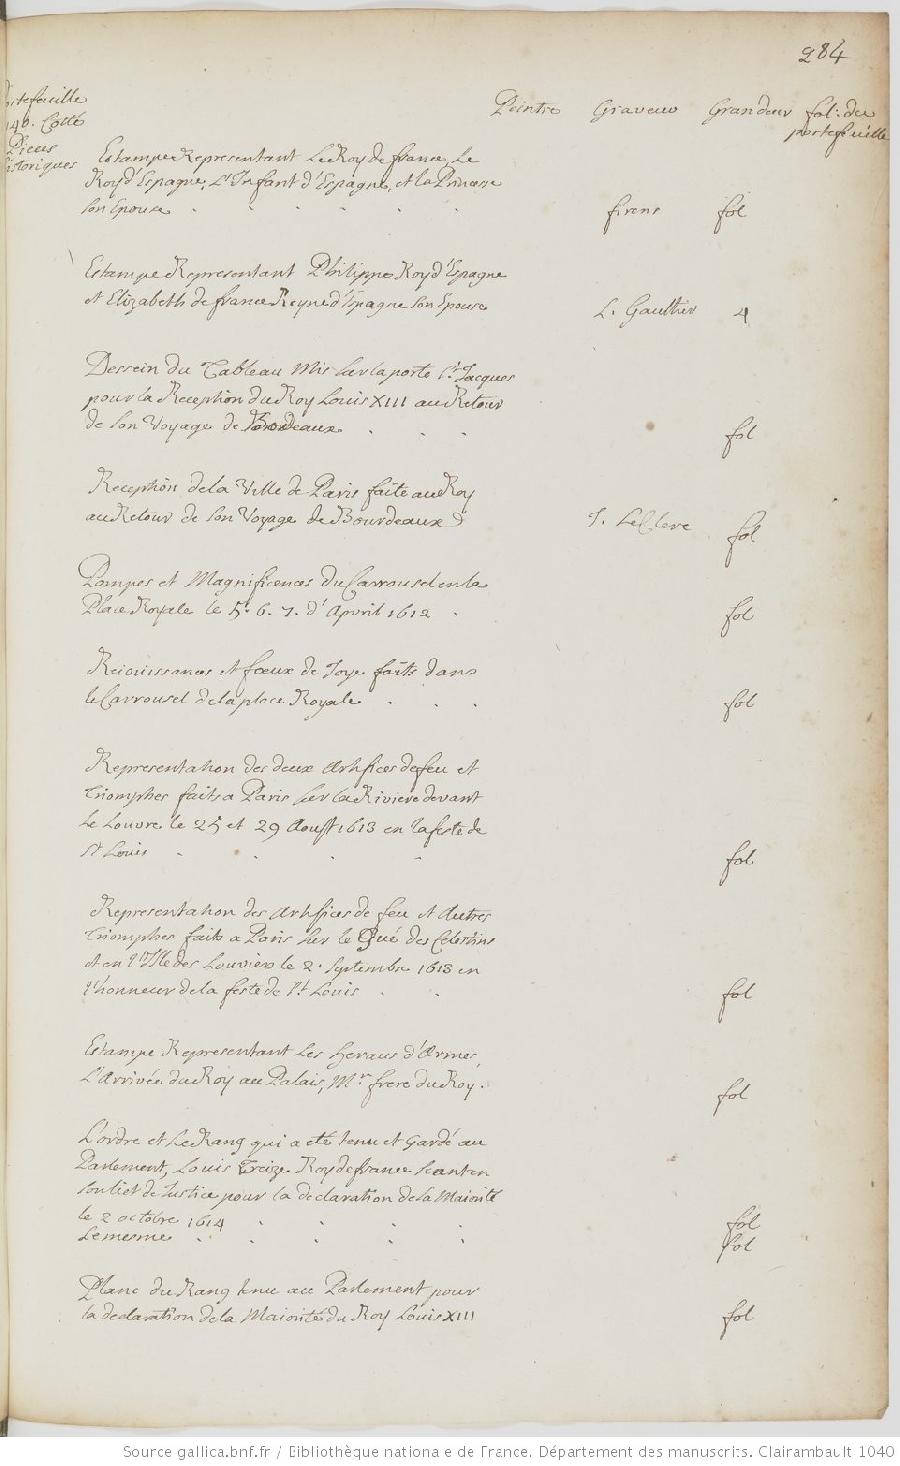 284
Portefeuille
140. Cotté
Pieces
historiques
Peintre Graveur Grandeur fol: du
portefeuille
Estampe Representant Le Roy de france, Le
Roy d'Espagne, L'Infant d'Espagne, et la Princesse
son Epouse firens fol
Estampe Representant Philippe Roy d'Espagne
et Elizabeth de france Reyne d'Espagne son Epouse L. Gaultier 4
Dessein du Tableau mis sur la porte St. Jacques
pour la Reception du Roy Louis XIII au Retour
de son Voyage de Bordeaux fol
Reception de la Ville de Paris faite au Roy
au Retour de son Voyage de Bourdeaux J. LeClerc fol
Pompes et Magnificences du Carrousel en la
Place Royale le 5. 6. 7. d'Apvril 1612 fol
Reiouissances et foeux de Joye faits dans
le Carrousel de la place Royale fol
Representation des deux Artifices de feu et
Triomphes faits a Paris sur la Riviere devant
Le Louvre le 25 et 29 Aoust 1613 en la feste de
St Louis fol
Representation des Artifices de feu et Autres
Triomphes faits a Paris sur le Qué des Celestins
et en l'Isle des Louviers le 2. Septembre 1613 en
l'honneur de la feste de St Louis fol
Estampe Representant Les Heraus d'Armes,
L'Arrivée du Roy au Palais, Mr. frere du Roy. fol
L'ordre et Le Rang qui a eté tenu et Gardé au
Parlement, Louis Treize Roy de france seant en
son lict de Justice pour la declaration de la Maiorité
le 2 octobre 1614 fol
Le mesme fol
Plane du Rang tenu au Parlement pour
la declaration de la Maiorité du Roy Louis XIII fol
Source gallica.bnf.fr / Bibliothèque nationale de France. Département des manuscrits. Clairambault 1040